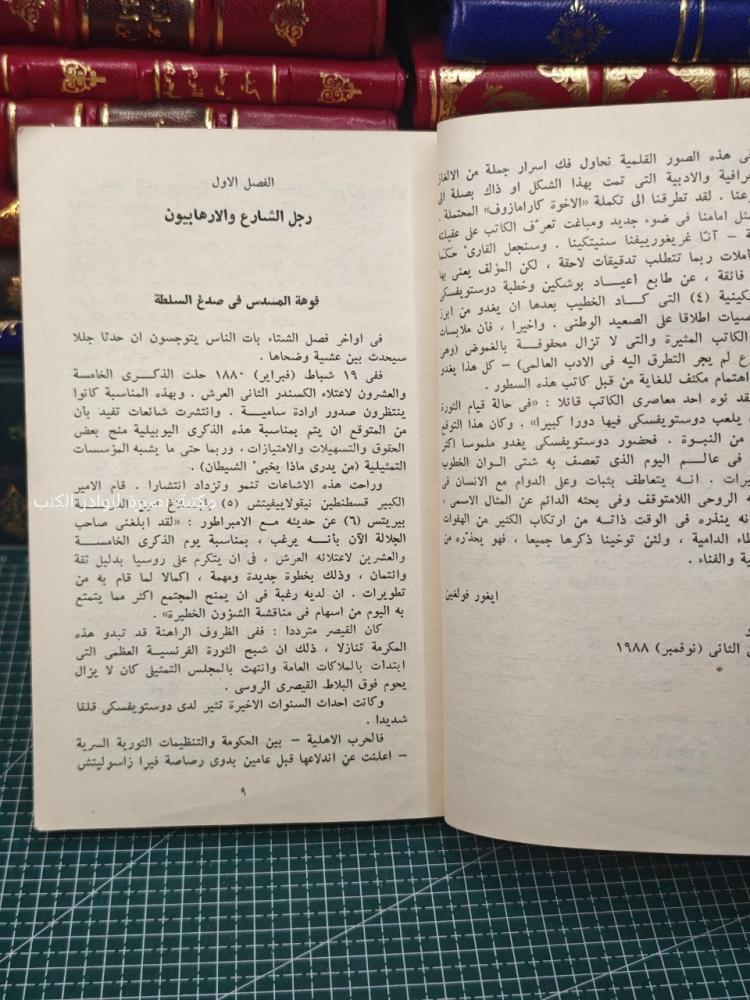 هذه الصور القلمية نحاول فك اسرار جملة من الالغاز
والادبية التى تمت بهذا الشكل او ذاك بصلة الى
لقد تطرقنا الى تكملة «الاخوة كارامازوف» المحتملة .
امامنا فى ضوء جديد ومباغت تعرّف الكاتب على عقيلته
– آنّا غريغورييفنا سنيتكينا . وسنجعل القارئ حكما
ربما تتطلب تدقيقات لاحقة ، لكن المؤلف يعنى بها
فائقة ، عن طابع اعياد بوشكين وخطبة دوستويفسكى
(٤) التى كاد الخطيب بعدها ان يغدو من ابرز
اطلاقا على الصعيد الوطنى . واخيرا ، فان ملابسات
الكاتب المثيرة والتى لا تزال محفوفة بالغموض (وهى
لم يجر التطرق اليه فى الادب العالمى) – كل هذا يغدو
اهتمام مكثف للغاية من قبل كاتب هذه السطور .
نوه احد معاصرى الكاتب قائلا : «فى حالة قيام الثورة
يلعب دوستويفسكى فيها دورا كبيرا» . وكان هذا التوقع
من النبوة . فحضور دوستويفسكى يغدو ملموسا اكثر
فى عالم اليوم الذى تعصف به شتى الوان الخطوب
انه يتعاطف بثبات وعلى الدوام مع الانسان فى
الروحى اللامتوقف وفى بحثه الدائم عن المثال الاسمى ،
ينذره فى الوقت ذاته من ارتكاب الكثير من الهفوات
الدامية ، ولئن توخينا ذكرها جميعا ، فهو يحذّره من
والفناء .
ايغور فولغين
الثانى (نوفمبر) ١٩٨٨
الفصل الاول
رجل الشارع والارهابيون
فوهة المسدس فى صدغ السلطة
فى اواخر فصل الشتاء بات الناس يتوجسون ان حدثا جللا
سيحدث بين عشية وضحاها .
ففى ١٩ شباط (فبراير) ١٨٨٠ حلت الذكرى الخامسة
والعشرون لاعتلاء الكسندر الثانى العرش . وبهذه المناسبة كانوا
ينتظرون صدور ارادة سامية . وانتشرت شائعات تفيد بأن
من المتوقع ان يتم بمناسبة هذه الذكرى اليوبيلية منح بعض
الحقوق والتسهيلات والامتيازات ، وربما حتى ما يشبه المؤسسات
التمثيلية (من يدرى ماذا يخبئ الشيطان) .
وراحت هذه الاشاعات تنمو وتزداد انتشارا . قام الامير
الكبير قسطنطين نيقولاييفيتش (٥) بابلاغ
بيريتس (٦) عن حديثه مع الامبراطور : «لقد ابلغنى صاحب
الجلالة الآن بأنه يرغب ، بمناسبة يوم الذكرى الخامسة
والعشرين لاعتلائه العرش ، فى ان يتكرم على روسيا بدليل ثقة
وائتمان ، وذلك بخطوة جديدة ومهمة ، اكمالا لما قام به من
تطويرات . ان لديه رغبة فى ان يمنح المجتمع اكثر مما يتمتع
به اليوم من اسهام فى مناقشة الشؤون الخطيرة» .
كان القيصر مترددا : ففى الظروف الراهنة قد تبدو هذه
المكرمة تنازلا ، ذلك ان شبح الثورة الفرنسية العظمى التى
ابتدأت بالملاكات العامة وانتهت بالمجلس التمثيلى كان لا يزال
يحوم فوق البلاط القيصرى الروسى .
وكانت احداث السنوات الاخيرة تثير لدى دوستويفسكى قلقا
شديدا .
فالحرب الاهلية – بين الحكومة والتنظيمات الثورية السرية
– اعلنت عن اندلاعها قبل عامين بدوى رصاصة فيرا زاسوليتش
٩
مكتبة بصيرة لنوادر الكتب